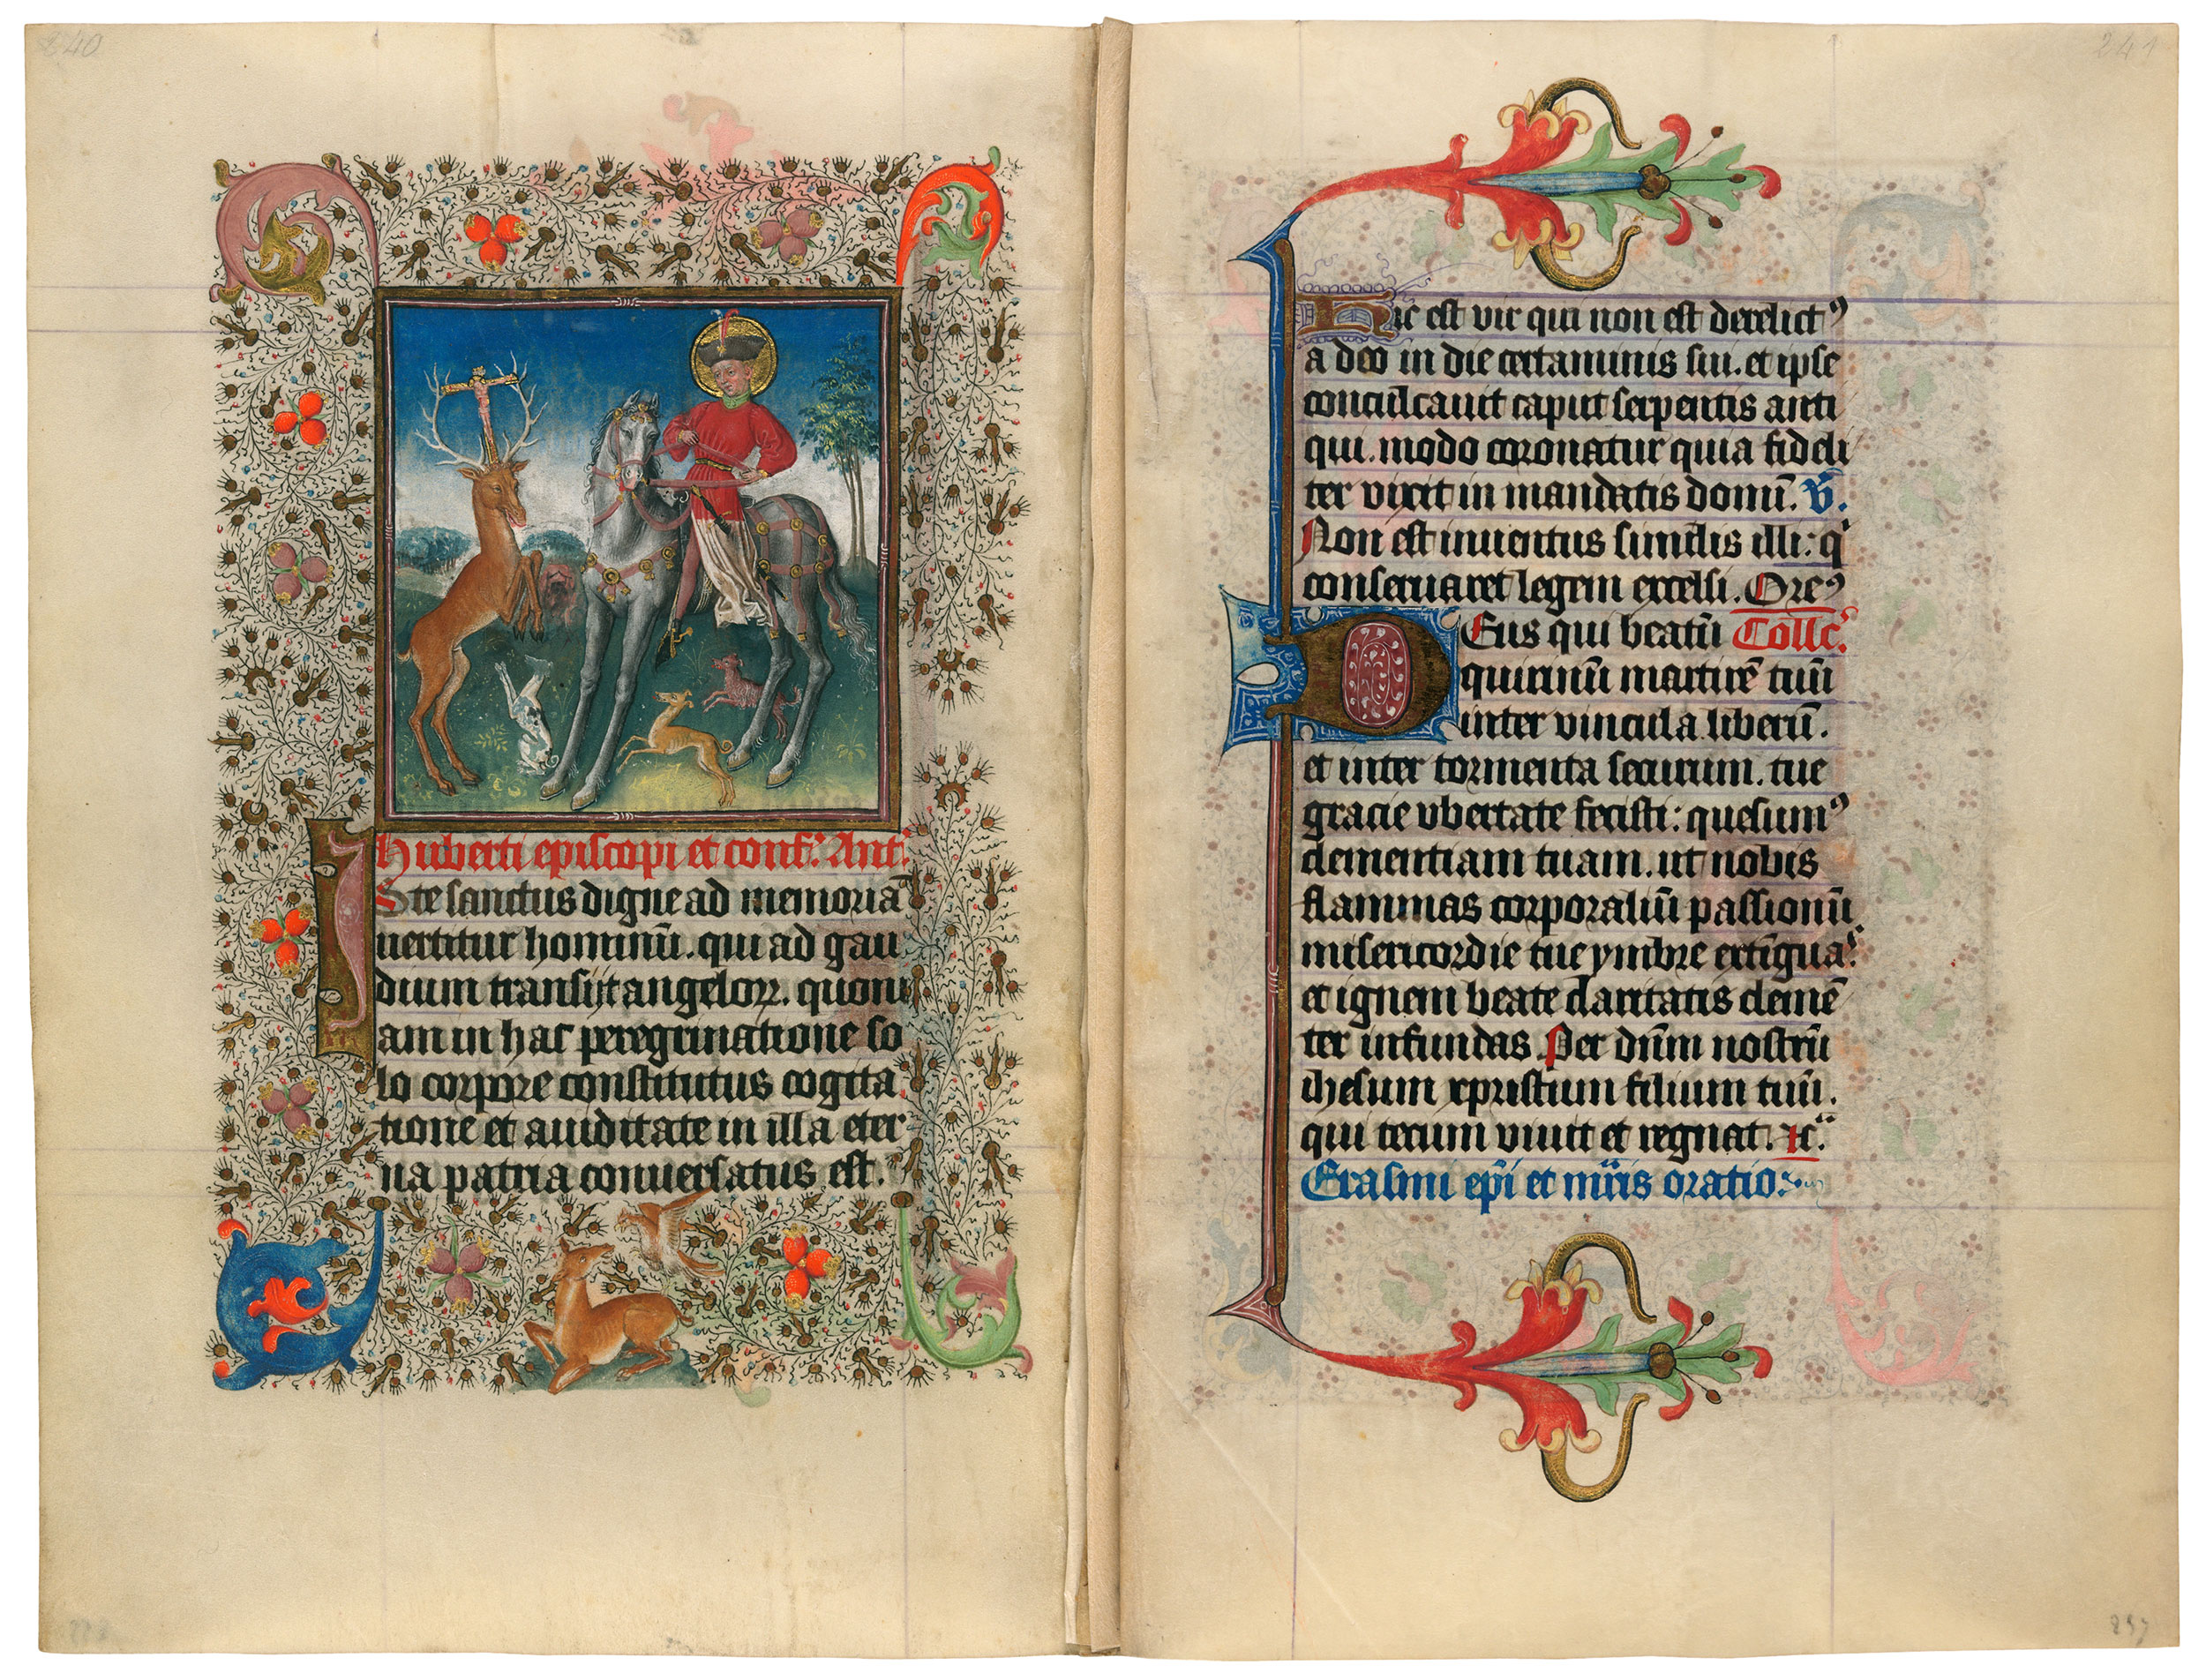 240
huberti episcopi et conf. Ant.
Ste sanctus digne ad memoriā
uertitur hominū. qui ad gau
dium transijt angelorꝝ. quoni
am in hac peregrinatione so
lo corpore constitutus cogita
tione et auiditate in illa eter
na patria conuersatus est.
241
Hic est vir qui non est derelictꝰ
a deo in die certaminis sui. et ipse
conculcauit caput serpentis anti
qui. modo coronatur quia fideli
ter vixit in mandatis domī. V̄.
Non est inuentus similis illi: q
conseruaret legem excelsi. Oreꝰ
DEus qui beatū Collc̄.
quirinū martirē tuū
inter vincula liberū.
et inter tormenta securum. tue
gracie vbertate fecisti: quesumꝰ
clementiam tuam. ut nobis
flammas corporaliū passionū
misericordie tue ymbre extīguas.
et ignem beate claritatis clemē
ter infundas Per dn̄m nostrū
ihesum xpristum filium tuū.
qui tecum viuit et regnat. ⁊c̄.
Erasmi ep̄i et mr̄is oratio:
237